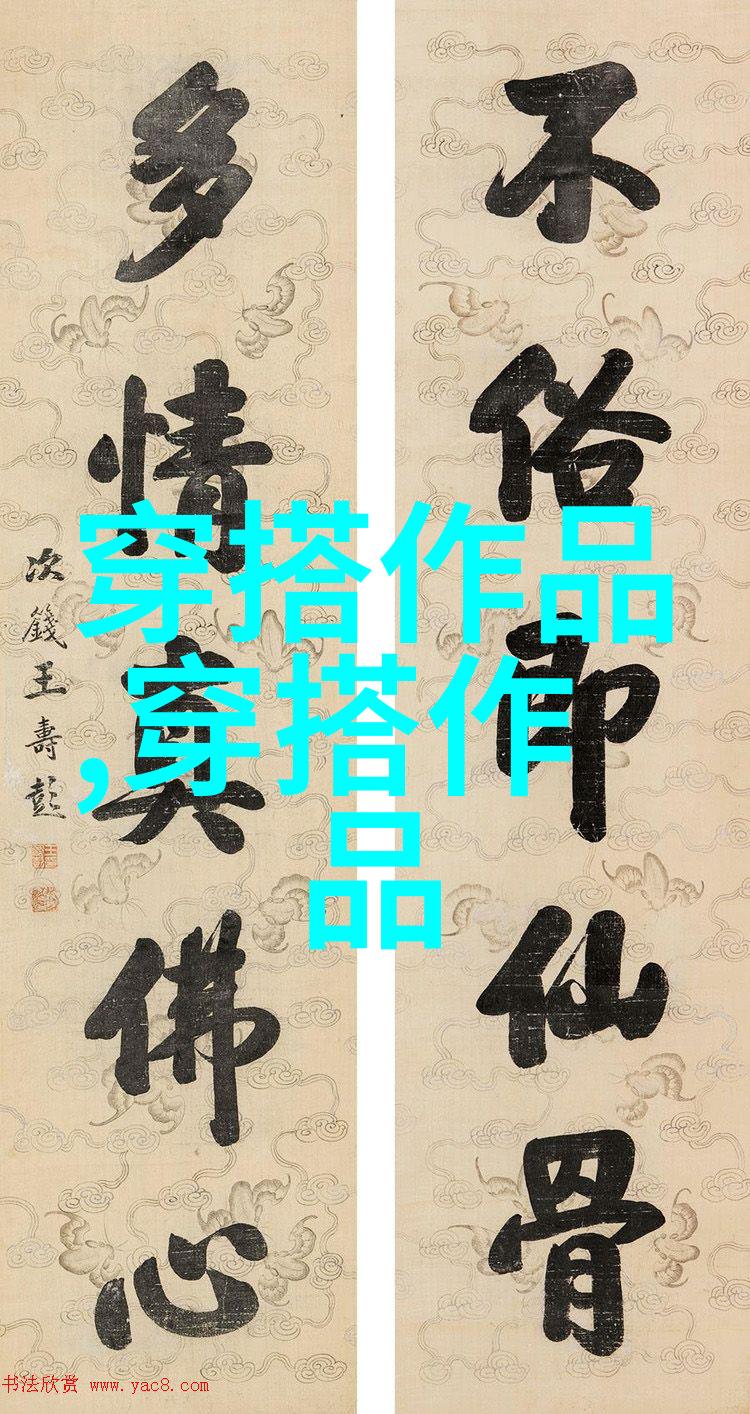 不俗即仙骨
多情真佛心
次篯王寿彭
穿搭作品
,穿搭作
品
书法欣赏 www.yac8.com